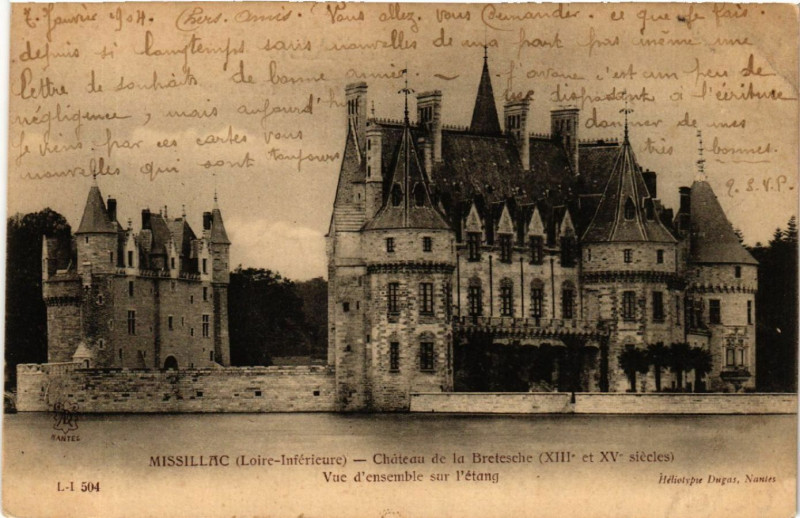 7. Janvier 1904. Chers Amis. Vous allez vous demander. ce que je fais.
depuis si longtemps sans nouvelles de ma part pas même une
lettre de souhaits de bonne année — J'avoue c'est un peu de
négligence, mais aujourd'hui
je viens par ces cartes vous donner de mes
nouvelles qui sont toujours très bonnes.
T. S. V. P.
NANTES
MISSILLAC (Loire-Inférieure) — Château de la Bretesche (XIIIᵉ et XVᵉ siècles)
Vue d'ensemble sur l'étang
L-I 504
Héliotypie Dugas, Nantes